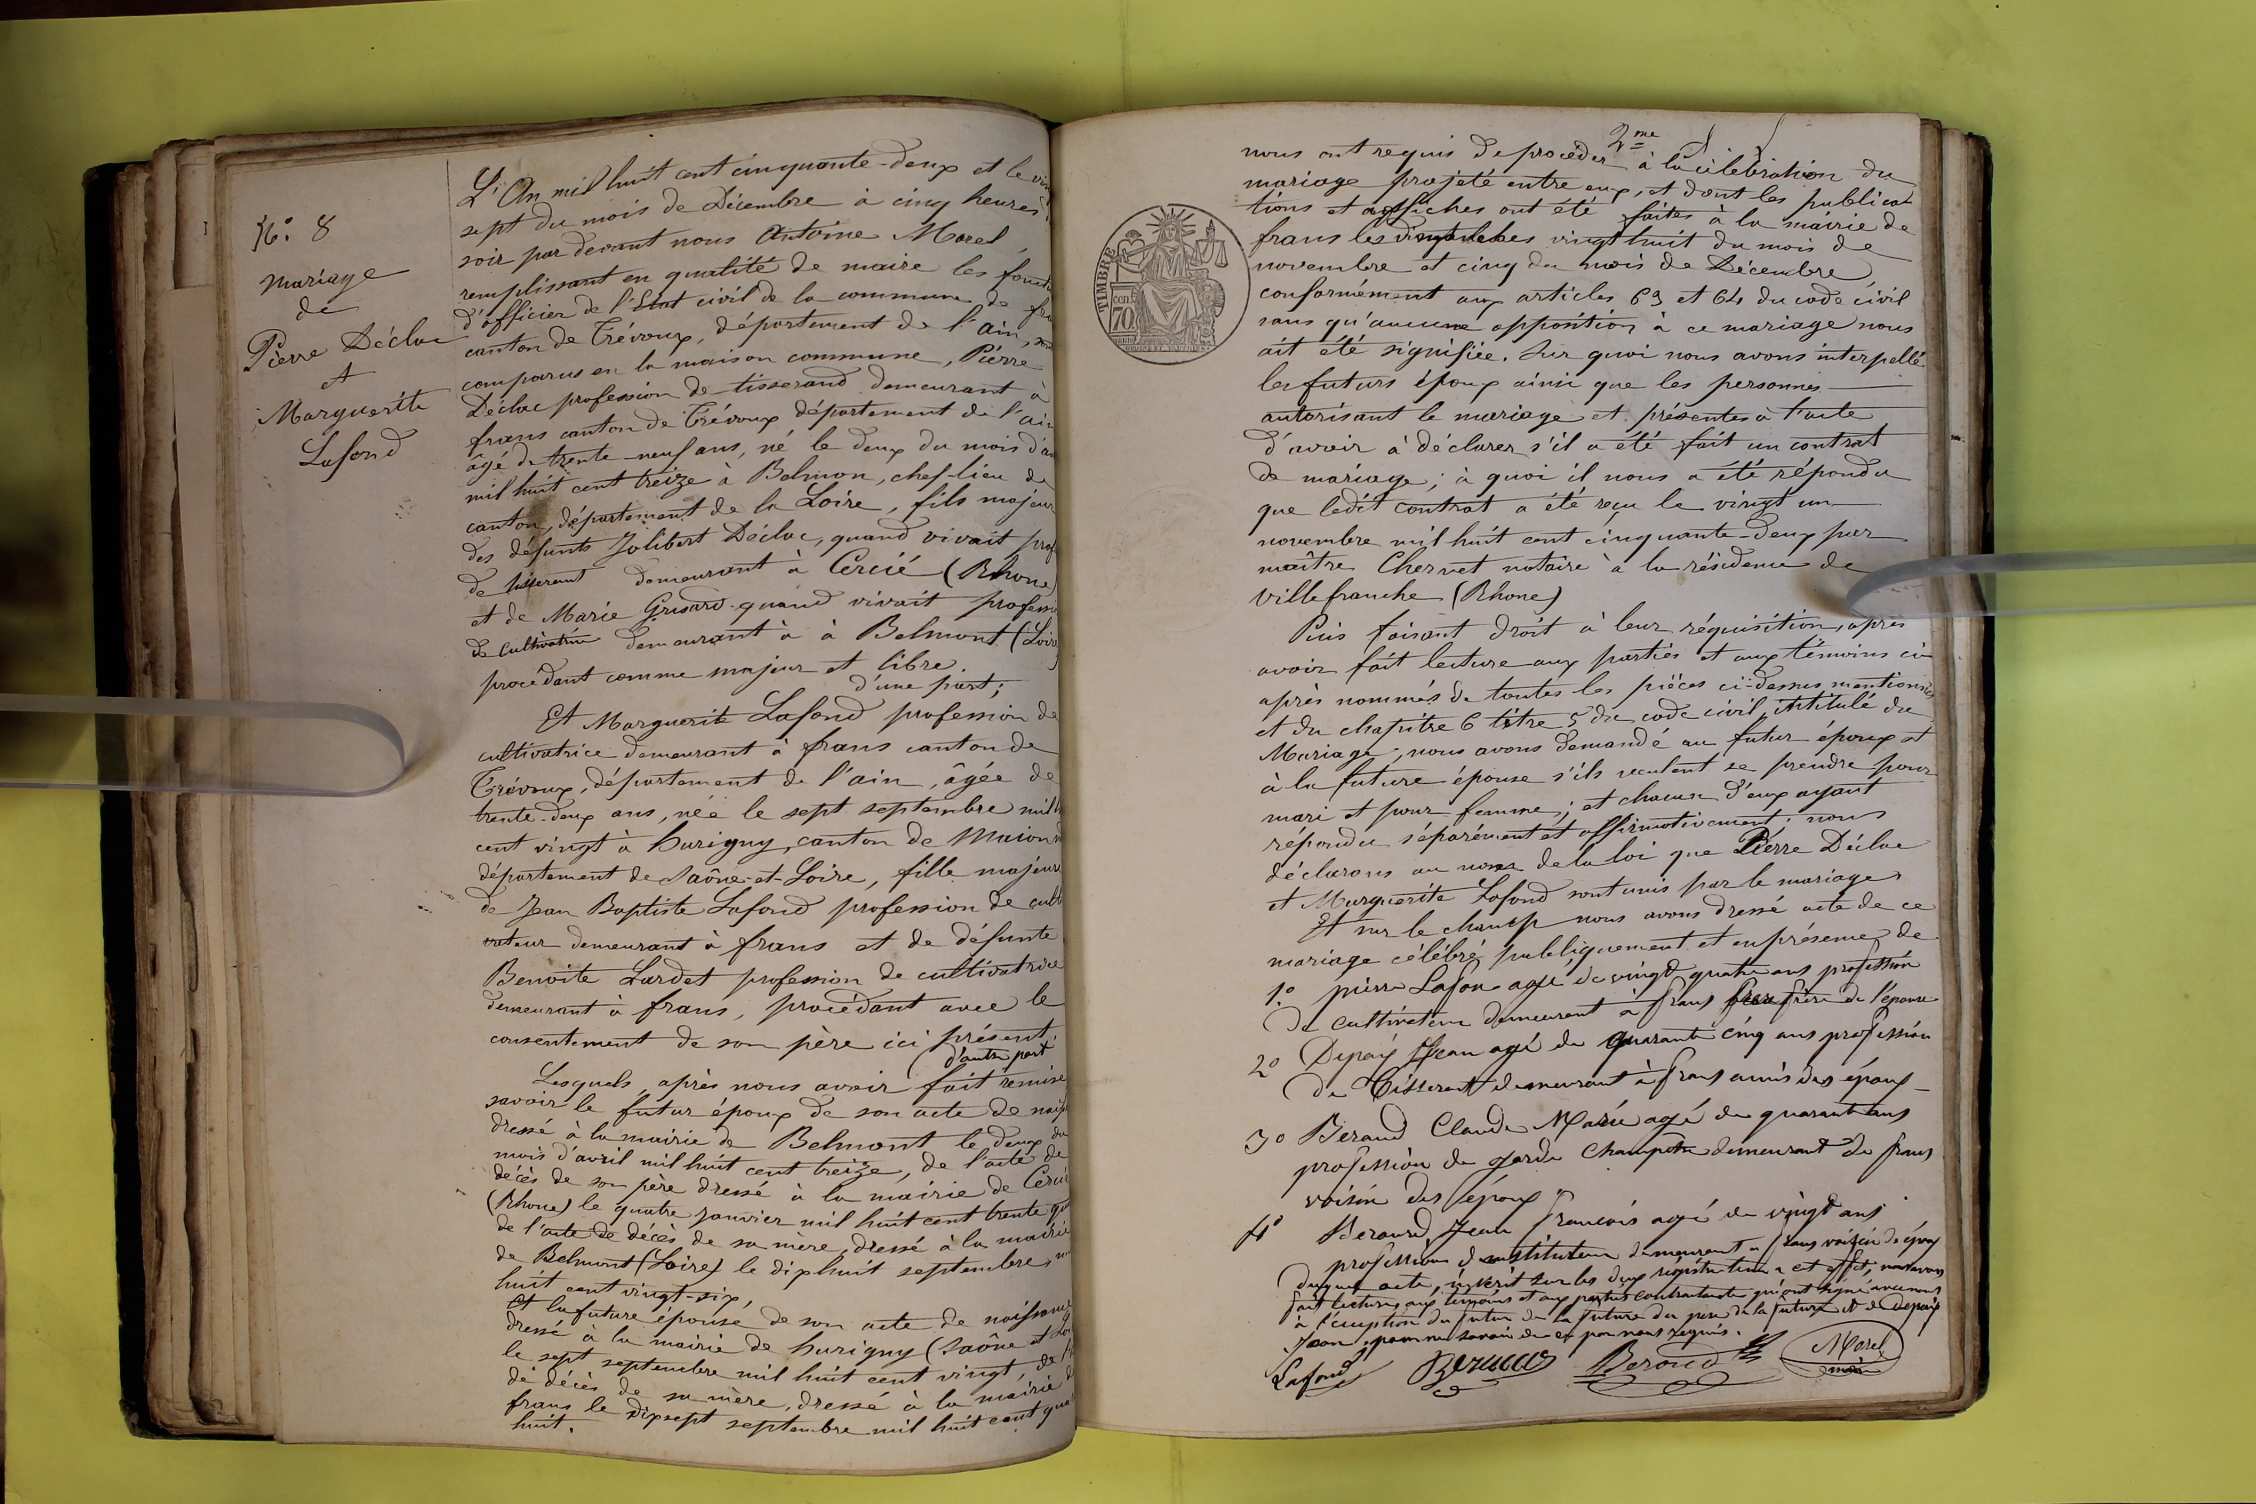 N.° 8
Mariage
de
Pierre Déclac
et
Marguerite
Lafond
L'An mil huit cent cinquante-deux et le vin
sept du mois de Décembre à cinq heures
soir par devant nous Antoine Morel
remplissant en qualité de maire les foncti
d'officier de l'Etat civil de la commune de fra
canton de Trévoux, département de l'ain, sont
comparus en la maison commune, Piérre
Déclac profession de tisserand demeurant à
frans canton de Trévoux département de l'ain
âgé de trente-neuf ans, né le deux du mois d'av
mil huit cent treize à Belmon, chef-lieu de
canton, département de la Loire, fils majeur
des défunts Jolibert Déclac, quand vivait prof
de tisserant demeurant à Cercié (Rhone)
et de Marie Grisard quand vivait professi
de cultivatrice demeurant à à Belmont (Loire)
procédant comme majeur et libre.
d'une part;
Et Marguerite Lafond profession de
cultivatrice demeurant à frans canton de
Trévoux, département de l'ain, âgée de
trente-deux ans, née le sept septembre mil h
cent vingt à hurigny, canton de Macon
département de Saône-et-Loire, fille majeure
de Jean Baptiste Lafond profession de culti
vateur demeurant à frans et de défunte
Benoite Lardet profession de cultivatrice
demeurant à frans, procédant avec le
consentement de son père ici présent,
d'autre part
Lesquels après nous avoir fait remise
savoir le futur époux de son acte de naiss
dressé à la mairie de Belmont le deux du
mois d'avril mil huit cent treize, de l'acte de
décès de son père dressé à la mairie de Cercié
(Rhone) le quatre janvier mil huit cent trente qua
de l'acte de décès de sa mère, dressé à la mairie
de Belmont (Loire) le dix huit septembre m
huit cent vingt-six,
Et la future épouse de son acte de naissance
dressé à la mairie de hurigny (Saône et Loi
le sept septembre mil huit cent vingt, de l'
de décès de sa mère, dressé à la mairie d
frans le dix sept septembre mil huit cent qua
huit.
2me
nous ont requis de procéder à la célébration du
mariage projeté entre eux, et dont les publica
tions et affiches ont été faites à la mairie de
frans les dimanches vingt huit du mois de
novembre et cinq du mois de Décembre
conformément aux articles 63 et 64 du code civil
sans qu'aucune opposition à ce mariage nous
ait été signifiée. Sur quoi nous avons interpellé
les futurs époux ainsi que les personnes
autorisant le mariage et présentes à l'acte
d'avoir à déclarer s'il a été fait un contrat
de mariage; à quoi il nous a été répondu
que ledit contrat a été reçu le vingt un
novembre mil huit cent cinquante-deux par
maître Chervet notaire à la résidence de
Villefranche (Rhone)
Puis faisant droit à leur réquisition, après
avoir fait lecture aux parties et aux témoins ci
après nommés de toutes les pièces ci-dessus mentionnées
et du chapitre 6 titre 5 du code civil intitulé du
Mariage, nous avons demandé au futur époux et
à la future épouse s'ils veulent se prendre pour
mari et pour femme; et chacun d'eux ayant
répondu séparément et affirmativement. nous
déclarons au nom de la loi que Piérre Déclac
et Marguerite Lafond sont unis par le mariage.
Et sur le champ nous avons dressé acte de ce
mariage célébré publiquement et en présence de
1.° pierre Lafon agé de vingt quatre ans profession
de cultivateur demeurant à frans frère de l'épouse
2° Depaix Jean agé de quarante cinq ans profession
de Tisserant demeurant à frans amis des époux
3° Beraud Claude Marie agé de quarante ans
profession de garde Champetre demeurant de frans
voisin des époux
4° Beraud Jean francois agé de vingt ans
profession d'instituteur demeurant a frans voisin de époux
duquel acte, inscrit sur les deux registres a cet effet, nous avons
fait lecture aux témoins et aux parties contractants qui ont signé avec nous
à l'éxception du futur de la future du père de la future et de Depaix
Jean pour ne savoir de ce par nous requis.
Lafond Beraud Beraud Morel
maire
TIMBRE
70